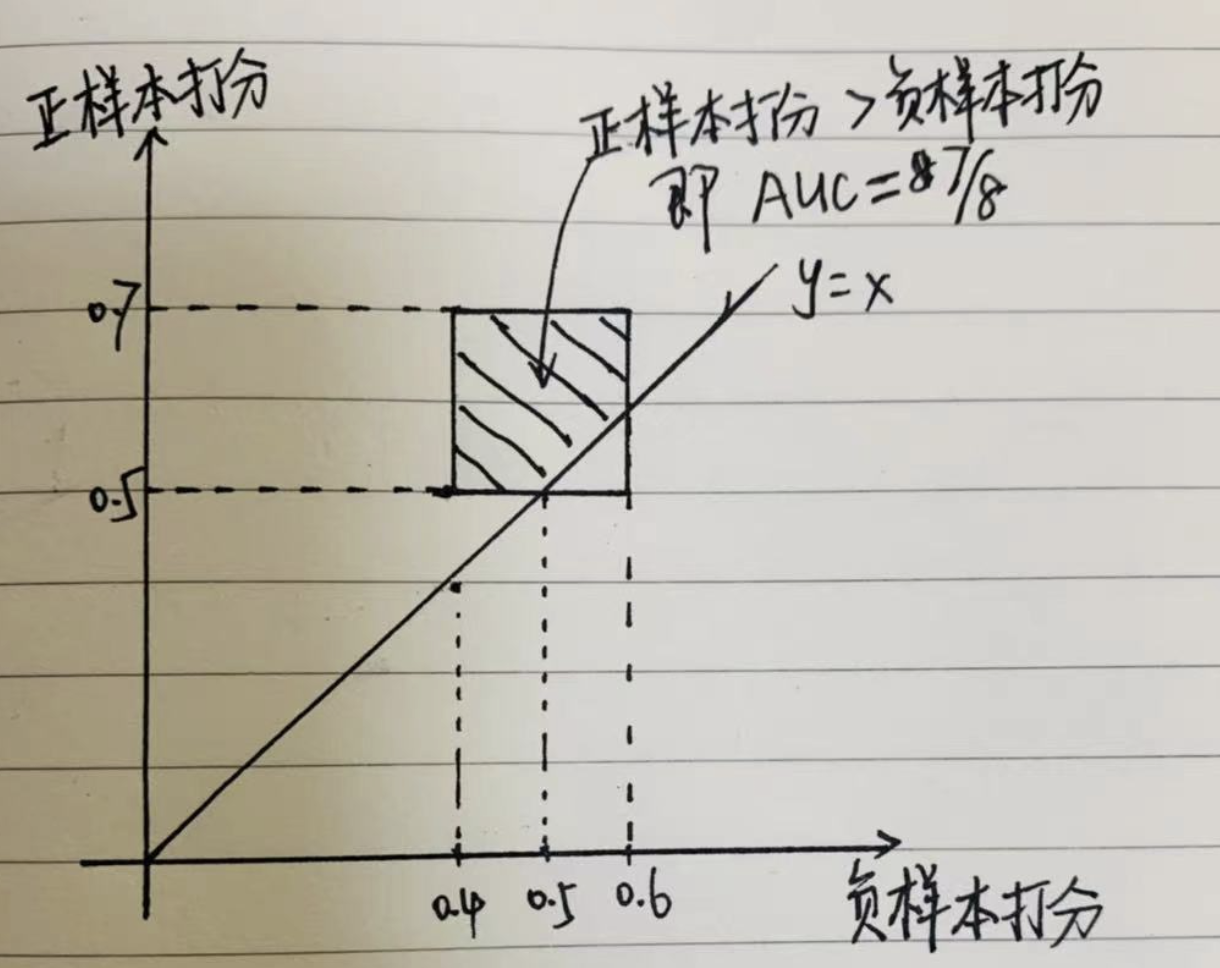 正样本打分
正样本打分 > 负样本打分
即 AUC = 7/8
y = x
0.7
0.5
0.4 0.5 0.6
负样本打分